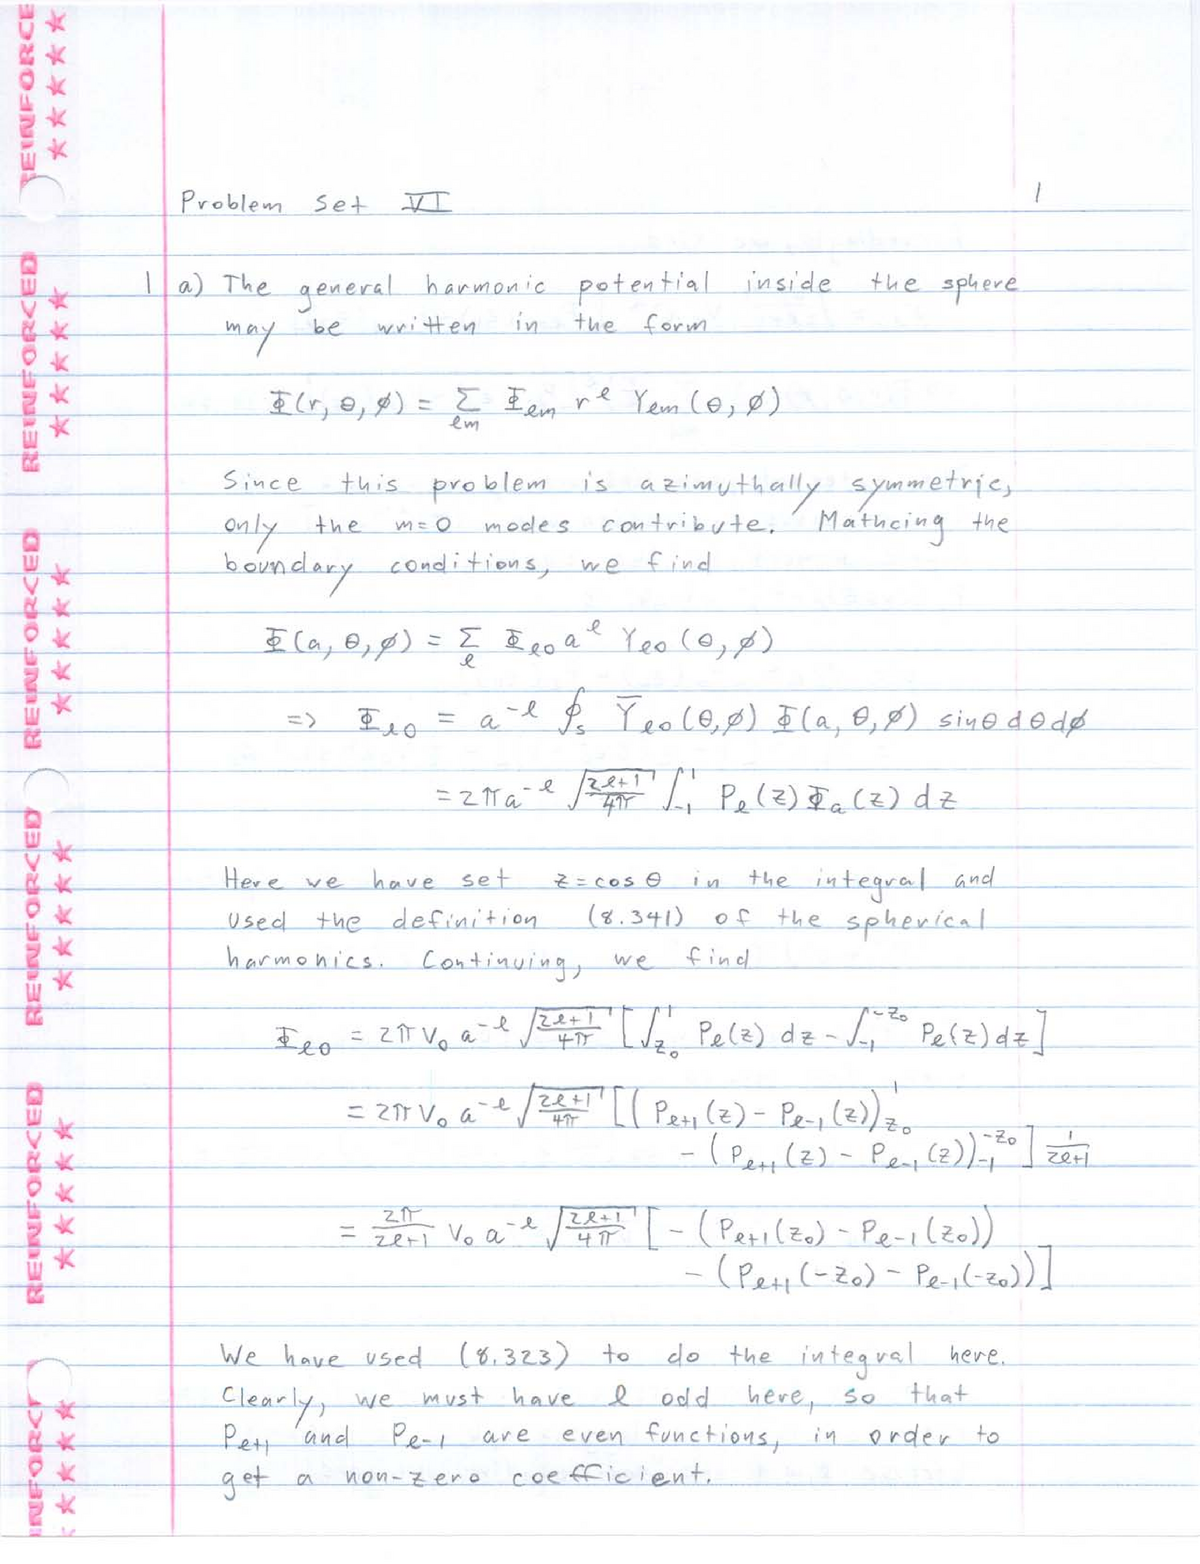 Problem Set VI
1
1 a) The general harmonic potential inside the sphere
may be written in the form
Φ(r, θ, φ) = Σ_{ℓm} Φ_{ℓm} r^ℓ Y_{ℓm}(θ, φ)
Since this problem is azimuthally symmetric,
only the m=0 modes contribute. Mathcing the
boundary conditions, we find
Φ(a, θ, φ) = Σ_ℓ Φ_{ℓ0} a^ℓ Y_{ℓ0}(θ, φ)
=> Φ_{ℓ0} = a^{-ℓ} ∮_s Ȳ_{ℓ0}(θ,φ) Φ(a, θ, φ) sinθ dθ dφ
= 2πa^{-ℓ} √((2ℓ+1)/4π) ∫_{-1}^{1} P_ℓ(z) Φ_a(z) dz
Here we have set z = cos θ in the integral and
used the definition (8.341) of the spherical
harmonics. Continuing, we find
Φ_{ℓ0} = 2π V_0 a^{-ℓ} √((2ℓ+1)/4π) [∫_{z_0}^{1} P_ℓ(z) dz - ∫_{-1}^{-z_0} P_ℓ(z) dz]
= 2π V_0 a^{-ℓ} √((2ℓ+1)/4π) [(P_{ℓ+1}(z) - P_{ℓ-1}(z))_{z_0}^{1}
- (P_{ℓ+1}(z) - P_{ℓ-1}(z))_{-1}^{-z_0}] 1/(2ℓ+1)
= 2π/(2ℓ+1) V_0 a^{-ℓ} √((2ℓ+1)/4π) [-(P_{ℓ+1}(z_0) - P_{ℓ-1}(z_0))
- (P_{ℓ+1}(-z_0) - P_{ℓ-1}(-z_0))]
We have used (8.323) to do the integral here.
Clearly, we must have ℓ odd here, so that
P_{ℓ+1} and P_{ℓ-1} are even functions, in order to
get a non-zero coefficient.
EINFORCE
REINFORCED
REINFORCED
REINFORCED
REINFORCED
INFORC